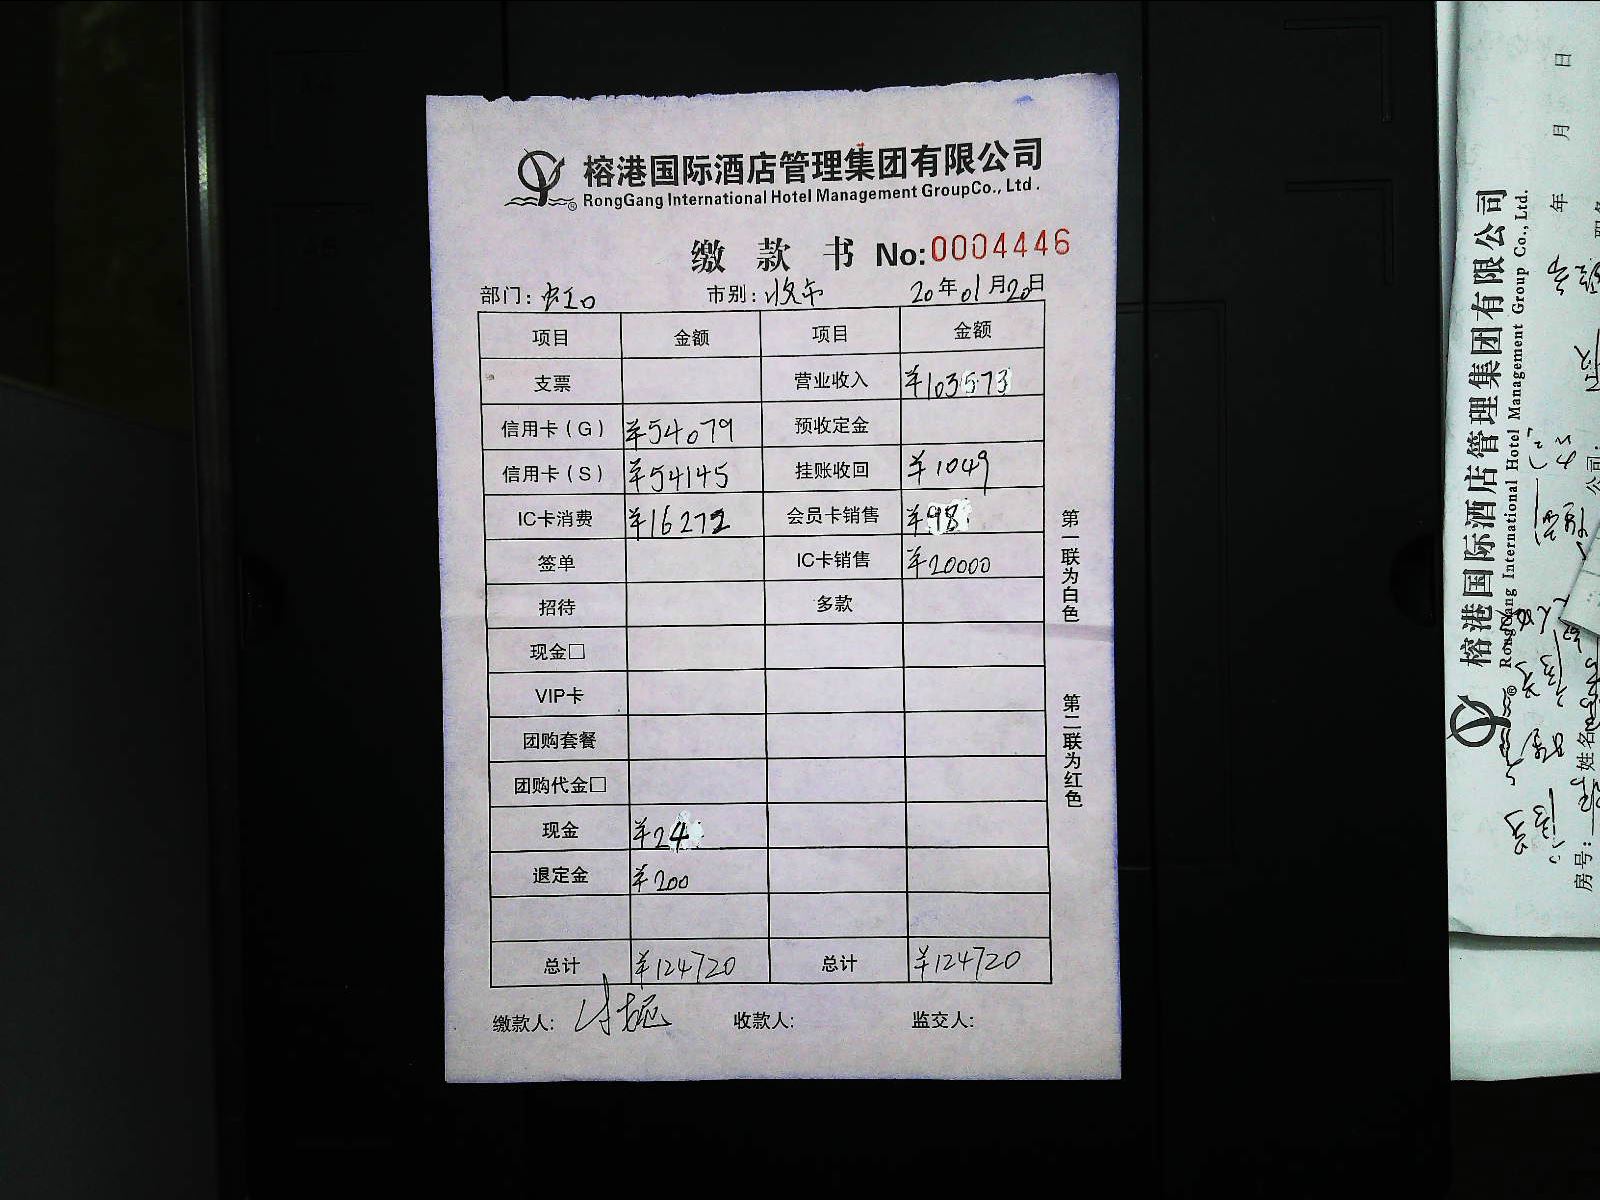 榕港国际酒店管理集团有限公司
RongGang International Hotel Management GroupCo., Ltd .
缴 款 书 No:0004446
部门: 虹口 市别: 收市 20年01月20日
项目 金额 项目 金额
支票 营业收入 ¥103573
信用卡(G) ¥54079 预收定金
信用卡(S) ¥54145 挂账收回 ¥1049
IC卡消费 ¥16272 会员卡销售 ¥98
签单 IC卡销售 ¥20000
招待 多款
现金□
VIP卡
团购套餐
团购代金□
现金 ¥24
退定金 ¥200
总计 ¥124720 总计 ¥124720
缴款人: 收款人: 监交人:
第一联为白色
第二联为红色
榕港国际酒店管理集团有限公司
RongGang International Hotel Management Group Co., Ltd.
年 月 日
公司:
房号: 姓名